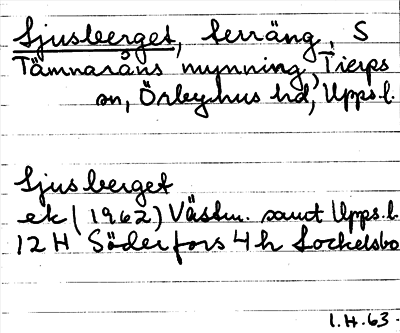 Ljusberget, terräng, S
Tämnaråns mynning, Tierps
sn, Örbyhus hd, Upps.l.
Ljusberget
ek (1962) Västm. samt Upps.l.
12H Söderfors 4h Sockelsbo
I.H.63.